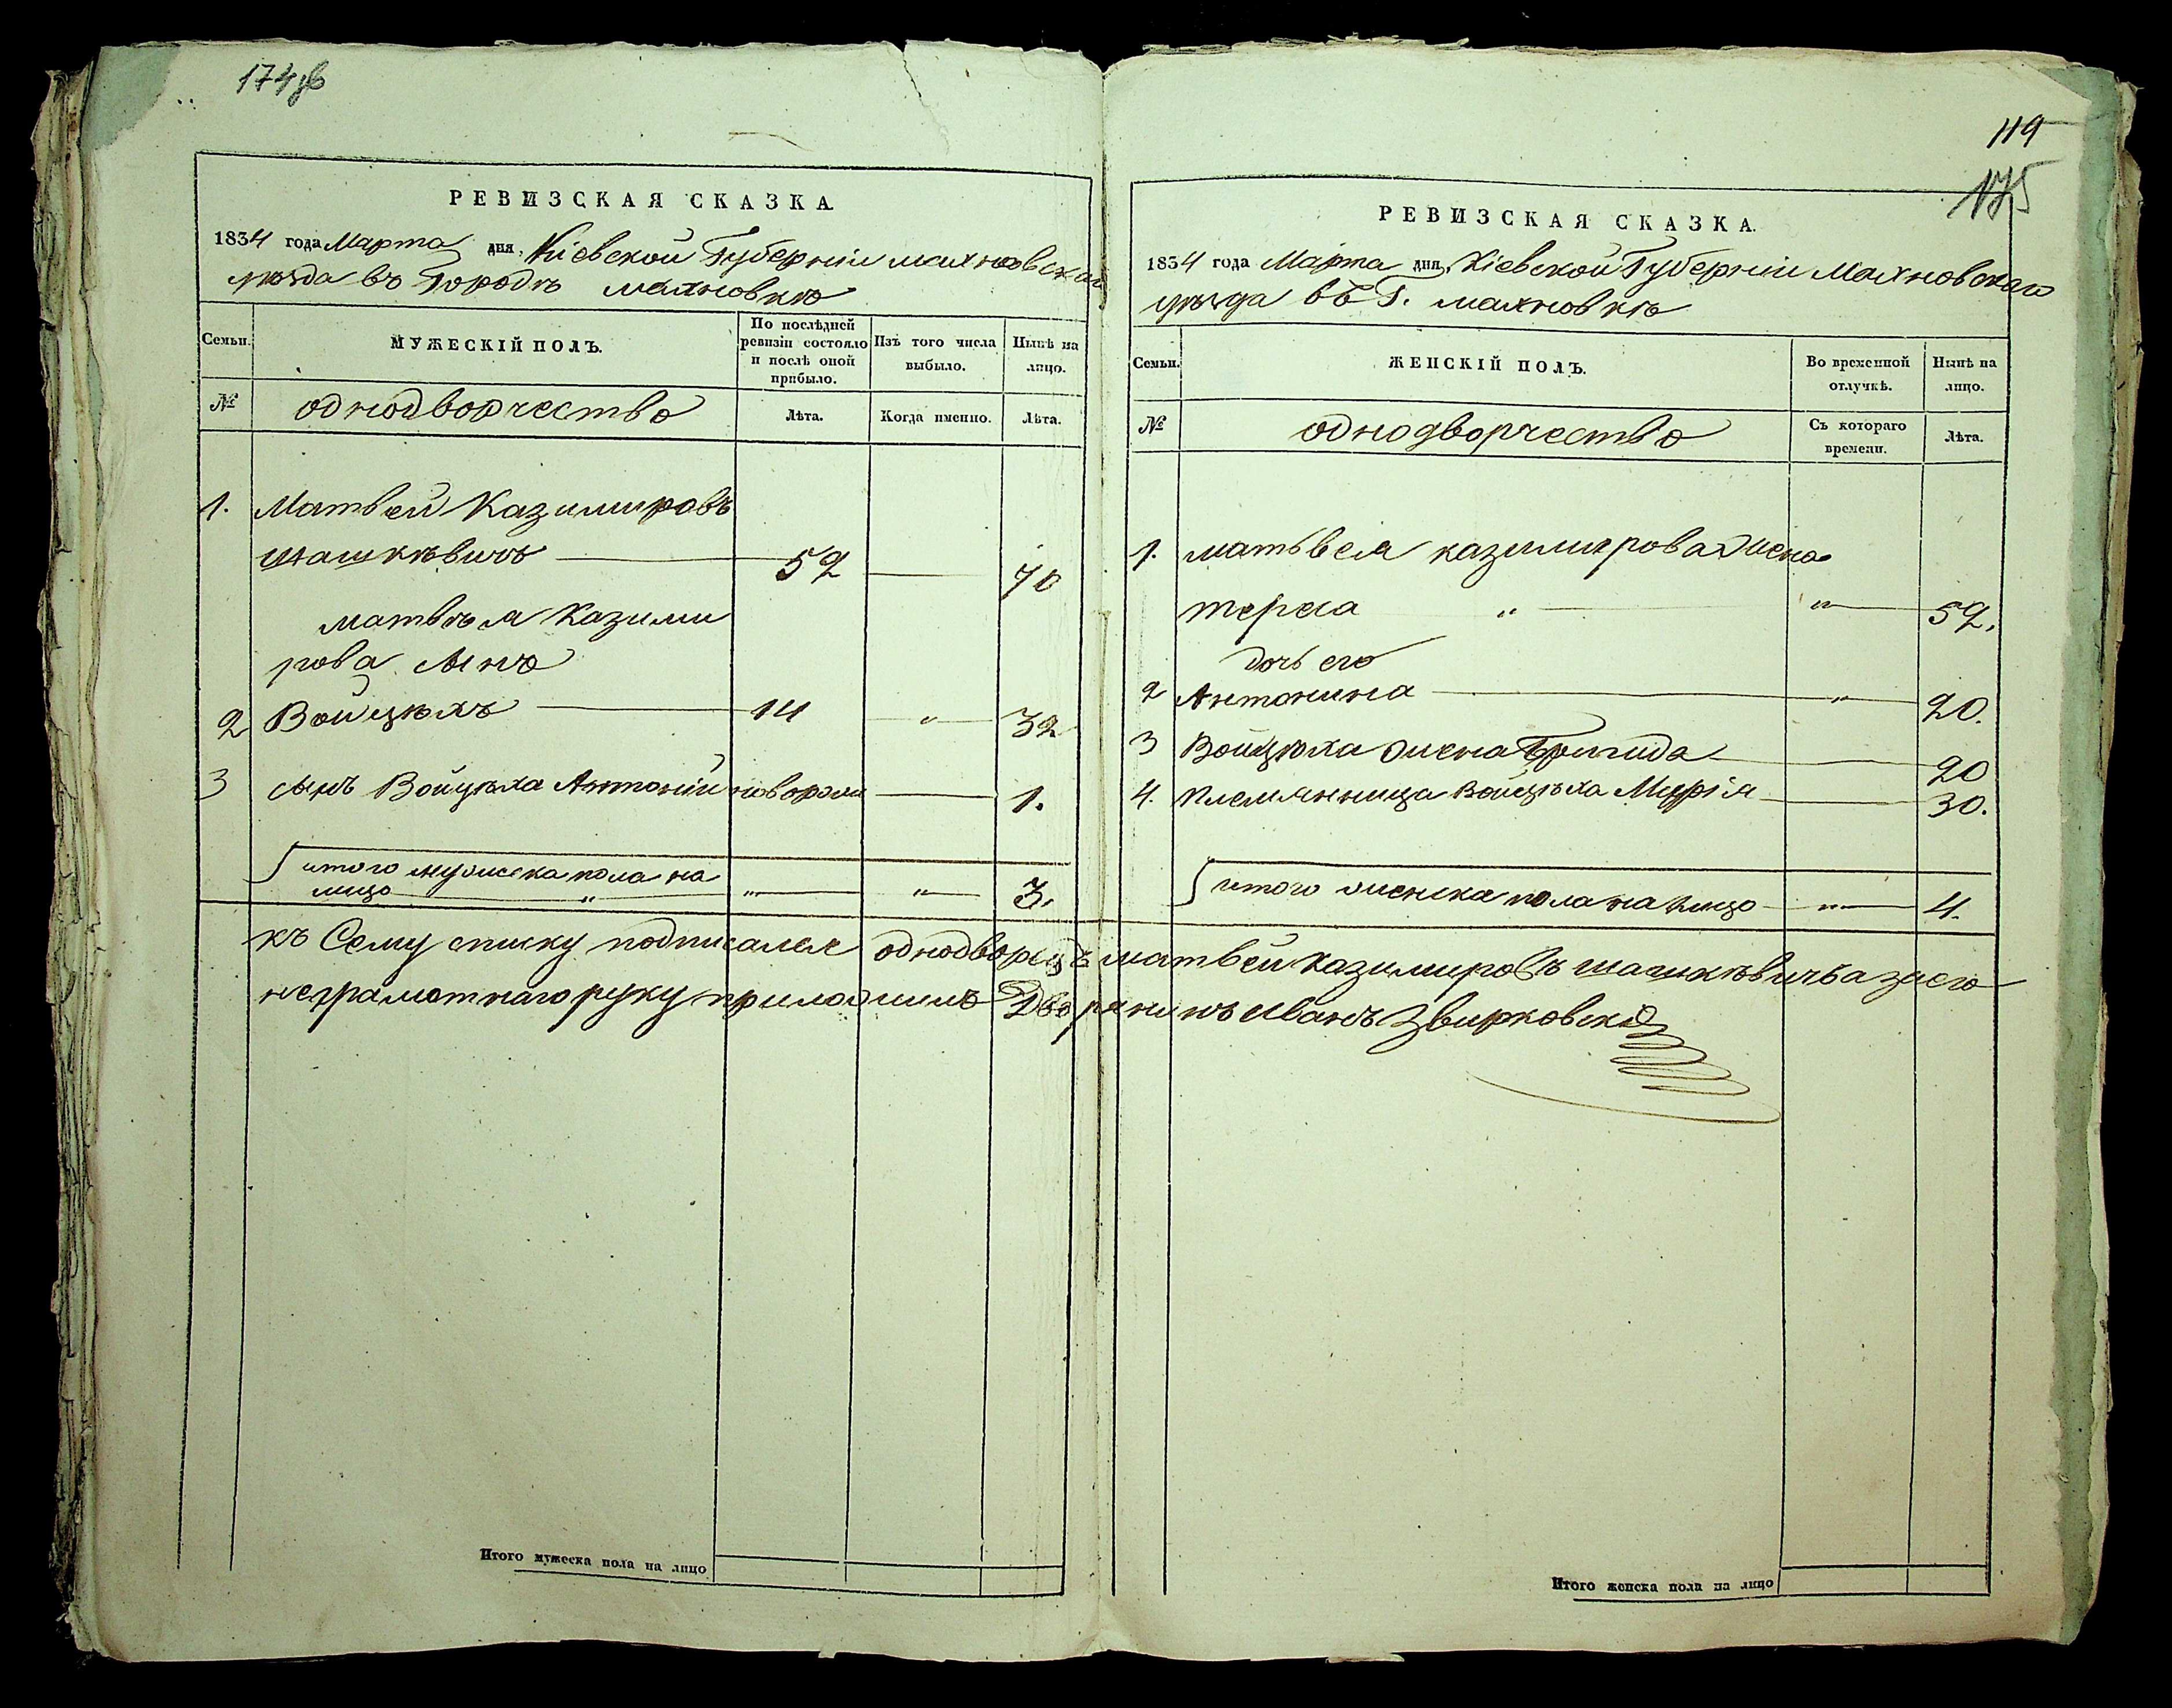 174 об
РЕВИЗСКАЯ СКАЗКА.
1834 года Марта дня, Кіевской Губерніи Махновскаго
уѣзда въ Городѣ Махновкѣ
Семьи.
МУЖЕСКІЙ ПОЛЪ.
По послѣдней ревизіи состояло и послѣ оной прибыло.
Изъ того числа выбыло.
Нынѣ на лицо.
№
однодворчество
Лѣта.
Когда именно.
Лѣта.
1. Матвей Казимировъ
шашкѣвичъ 52 70
матвѣя Казими
рова сынъ
2 Войцѣхъ 14 " 32
3 сынъ Войцѣха Антоній новорожд 1.
итого мужеска пола на
лицо " " " 3.
119
175
РЕВИЗСКАЯ СКАЗКА.
1834 года Марта дня, Кіевской Губерніи Махновскаго
уѣзда въ Г. махновкѣ
Семьи.
ЖЕНСКІЙ ПОЛЪ.
Во временной отлучкѣ.
Нынѣ на лицо.
№
однодворчество
Съ котораго времени.
Лѣта.
1. матьвея казимирова жена
тереса " " 52.
дочь его
2 Антонина " 20.
3 Войцѣха жена Бригида 20
4. племянница Войцѣха Марія 30.
итого женска пола на лицо " 4.
къ Сему списку подписался однодворецъ матвей казимировъ шашкѣвичъ а за его
неграмотнаго руку приложилъ Дворянинъ иванъ Звирковскій
Итого мужеска пола на лицо
Итого женска пола на лицо